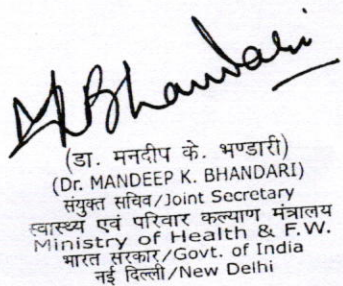 MKBhandari
(डा. मनदीप के. भण्डारी)
(Dr. MANDEEP K. BHANDARI)
संयुक्त सचिव/Joint Secretary
स्वास्थ्य एवं परिवार कल्याण मंत्रालय
Ministry of Health & F.W.
भारत सरकार/Govt. of India
नई दिल्ली/New Delhi